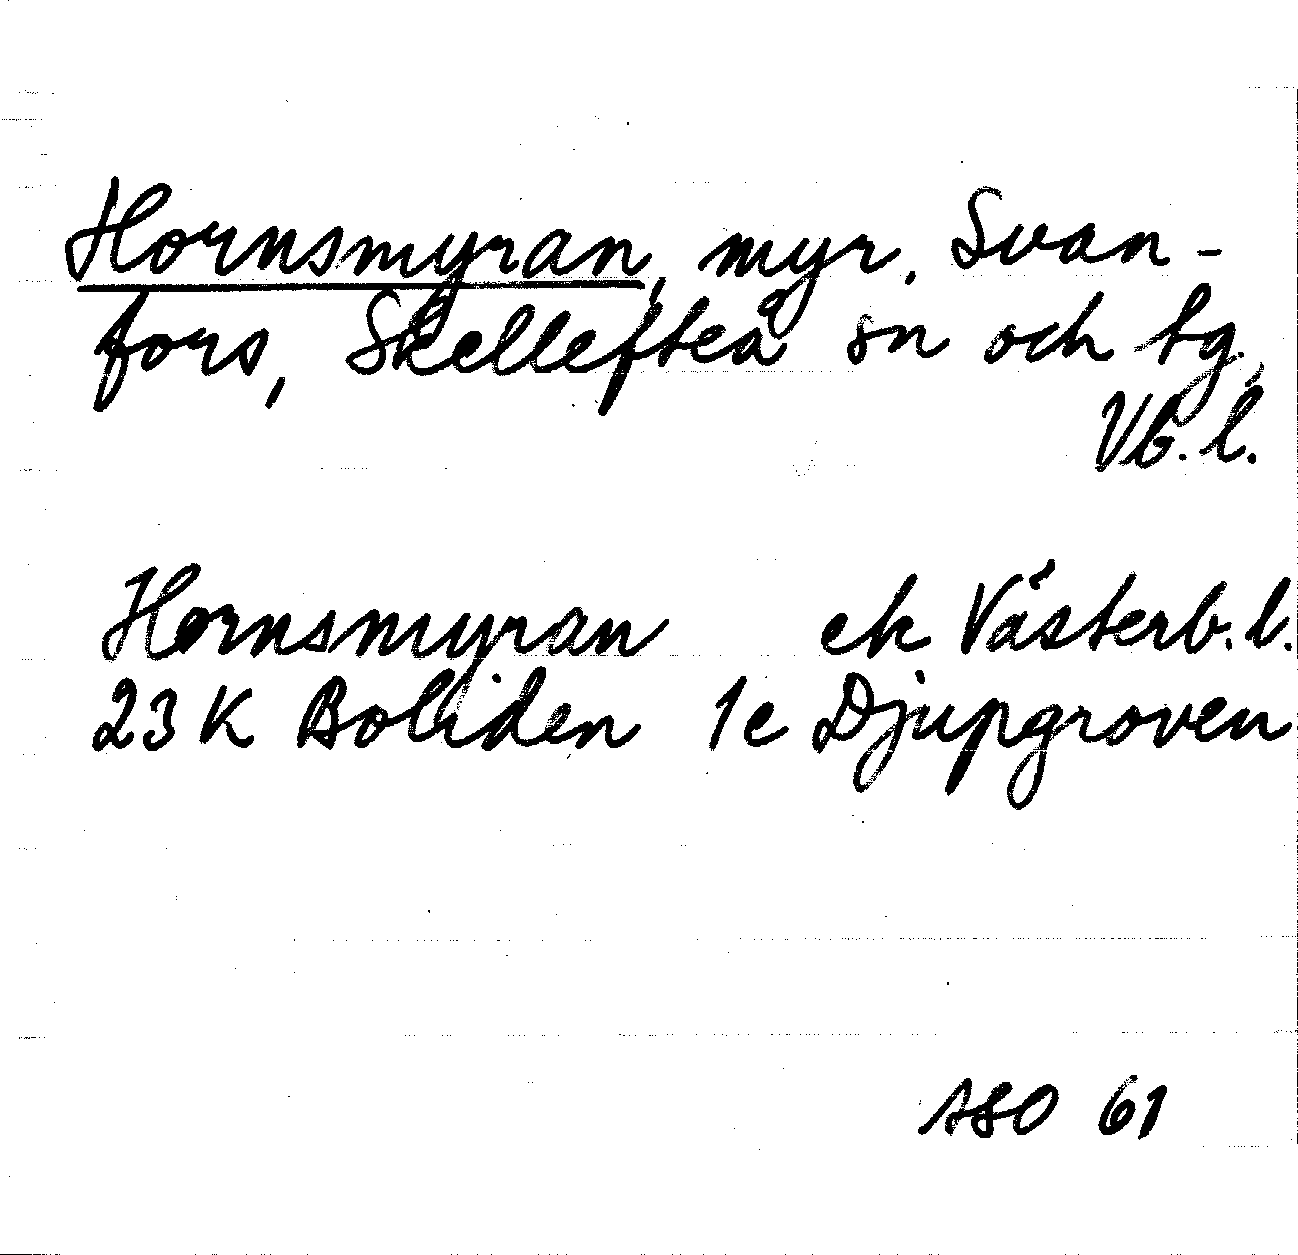 Hornsmyran, myr, Svan-
fors, Skellefteå sn och tg,
Vb. l.
Hornsmyran ek Västerb. l.
23 K Boliden 1e Djupgroven
ASO 61